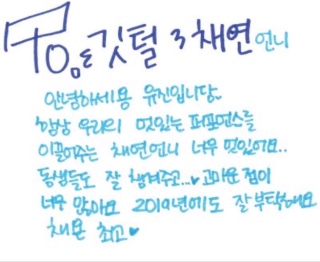 To. 깃털 채연 언니
안녕하세용 유진입니당..
항상 우리의 멋있는 퍼포먼스를
이끌어주는 채연언니 너무 멋있어요..
동생들도 잘 챙겨주고...♥ 고마운 점이
너무 많아요 2019년에도 잘부탁해요
채욘 최고♥